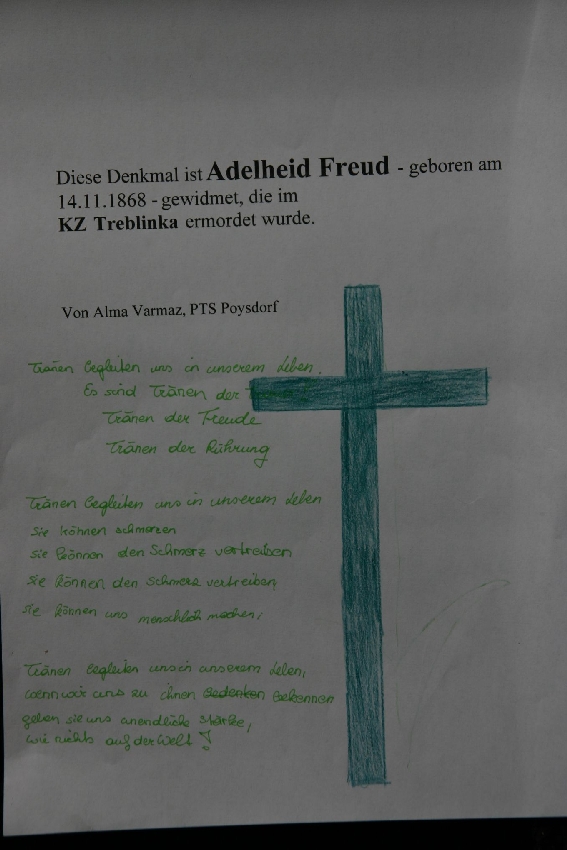 Diese Denkmal ist Adelheid Freud - geboren am
14.11.1868 - gewidmet, die im
KZ Treblinka ermordet wurde.
Von Alma Varmaz, PTS Poysdorf
Tränen begleiten uns in unserem Leben.
Es sind Tränen der
Tränen der Freude
Tränen der Rührung
Tränen begleiten uns in unserem Leben
sie können schmerzen
sie können den Schmerz vertreiben
sie können den Schmerz vertreiben
sie können uns menschlich machen,
Tränen begleiten uns in unserem Leben,
wenn wir uns zu ihnen bedenken bekennen
geben sie uns unendliche Stärke,
wie nichts auf der Welt!